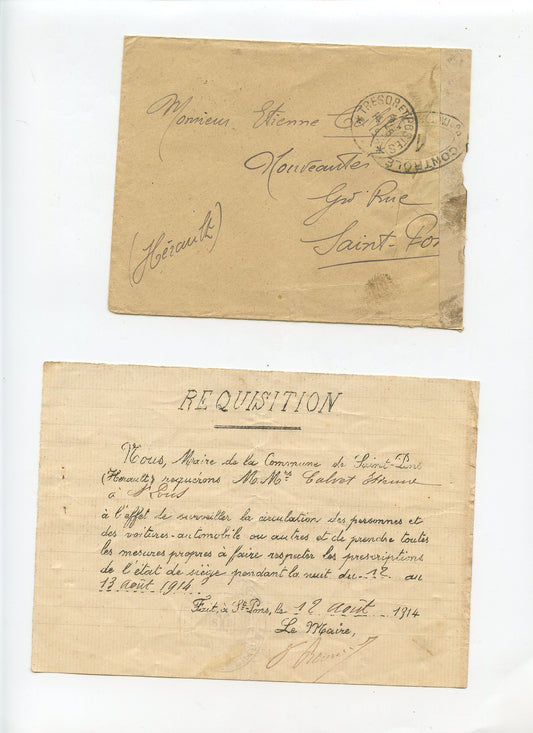 Monsieur Etienne
Nouveautés
Gde Rue
Saint-Pon
(Hérault)
TRESOR ET POSTES
CONTRÔLE
REQUISITION
Nous, Maire de la Commune de Saint-Pons
(Hérault) requérons M. Mrs Calvet Etienne
à St Pons
à l'effet de surveiller la circulation des personnes et
des voitures-automobile ou autres et de prendre toutes
les mesures propres à faire respecter les prescriptions
de l'état de siège pendant la nuit du 12 au
13 août 1914
Fait, à St-Pons, le 12 août 1914
Le Maire,